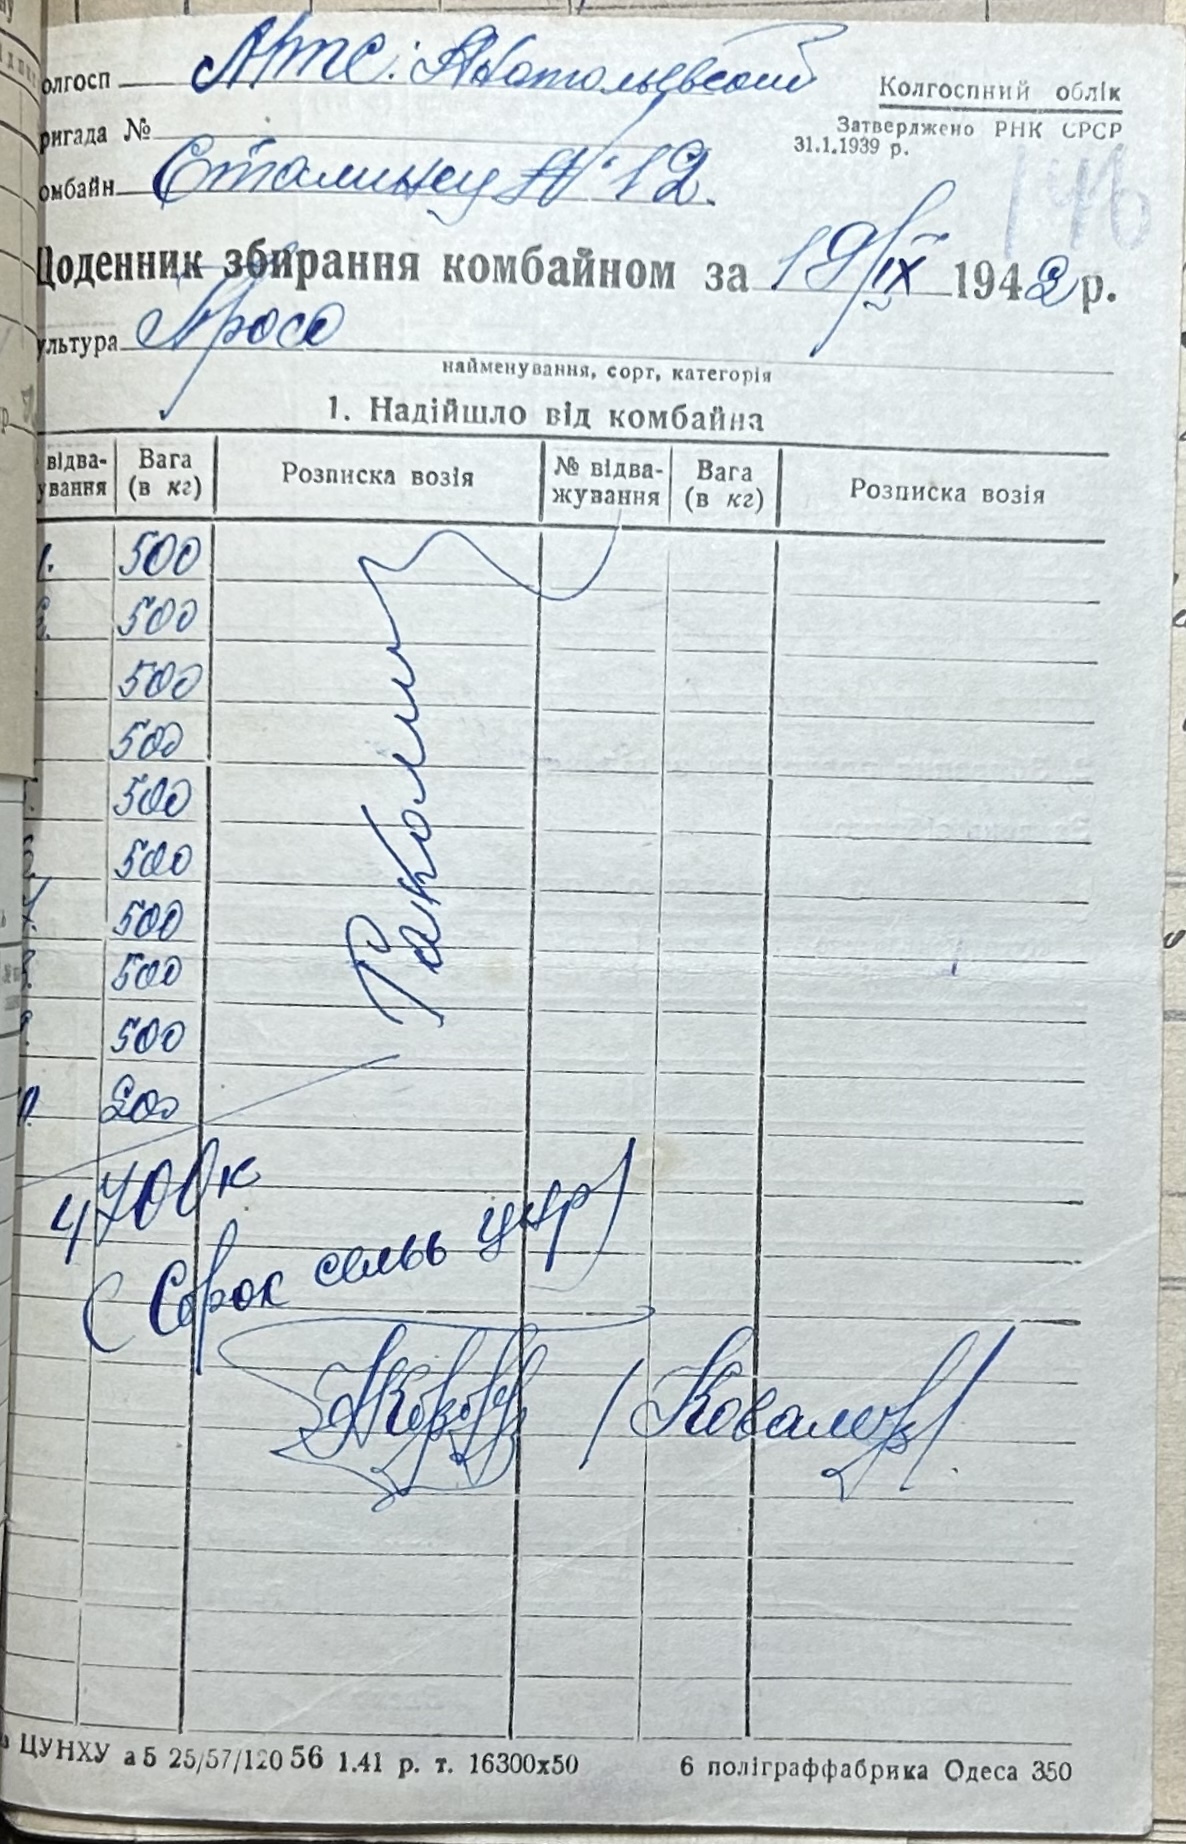 олгосп МТС:
ригада №
Колгоспний облік
Затверджено РНК СРСР
31.1.1939 р.
омбайн Сталинец №12.
146
Щоденник збирання комбайном за 19/IX 1942 р.
ультура Просо
найменування, сорт, категорія
1. Надійшло від комбайна
відва-
ування Вага
(в кг) Розписка возія № відва-
жування Вага
(в кг) Розписка возія
1. 500
2. 500
500
500
500
6. 500
7. 500
8. 500
9. 500
10. 200
4700 к
(Сорок семь цнр)
ЦУНХУ а5 25/57/120 56 1.41 р. т. 16300х50 6 поліграффабрика Одеса 350